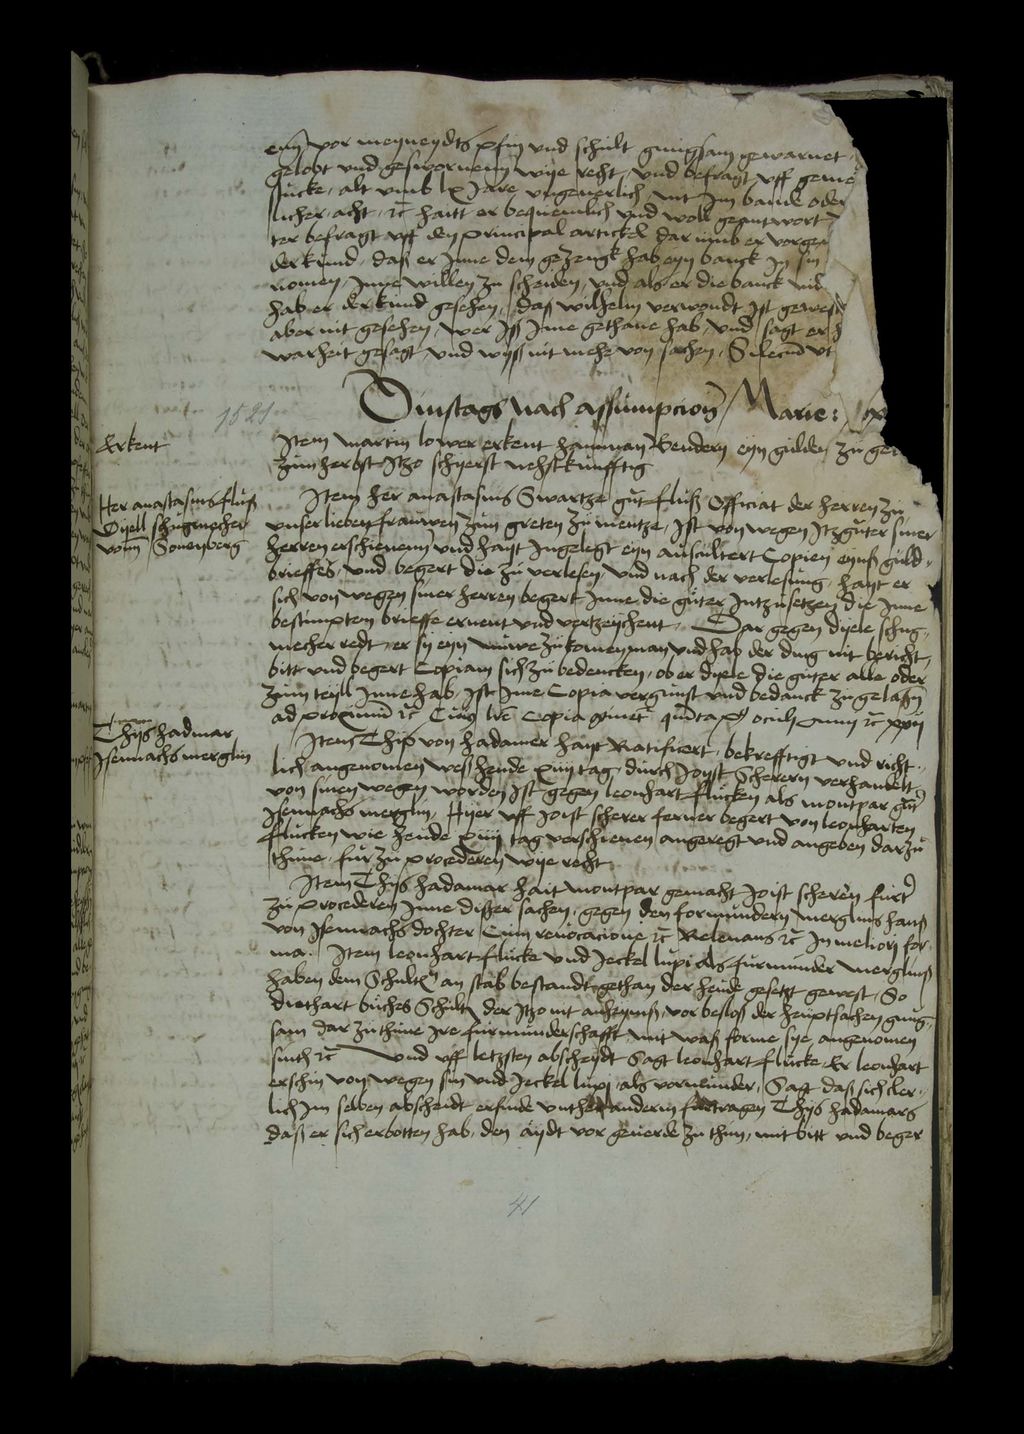 eyn vor meyneydts pfin und schult gnugsam gewarnet
gelobt und geswornenn wye recht, und befragt uff geme
stucke, alt umb lx Jare ungeverlich nit Im bande oder
licher acht, etc hait er bequemlich und woll geantwort
ter befragt uff den principal artickel dar umb er vorgen
der kund, das er Inne dem gezengk hab eyn banck In sin
nomen, Inne willen zu scheiden, und als er die banck
hab er der kund gesehen, das wilhelm verwondt Ist gewest
aber nit gesehen, wer Iss Ime gethane hab, und sagt er
warheit gesagt und wyss nit mehe von sachen, Silencium ut
Dinstags nach assumpcionis Marie:
1521
Erkent
Item martin lower erkent hamman Benderr eyn gulden zu
zum herbst Itzo schyerst nehstkunfftig
Her anastasius fluss
Dyell schugmecher
vonn Sonenberg
Item her anastasius Swartze gut fluss Officiat der herren zu
unser lieben frauwen zum greten zu mentze, Ist von wegen Itzguter siner
herren erschienenn und hayt Ingelegt eyn auscultert Copien eynss guld
brieffes, und begert die zu verlesen, und nach der verlesung, hayt er
sich von wegen siner herren begert Inne die guter Intzusetzen die Inne
bestimpten brieffe ernent und vertzeychent, Dar gegen dyele schug
mecher redt, er sy eyn nuwe zukomen man und hab der ding nit bericht,
bitt und begert Copiam sich zu bedencken, ob er dyele die guter alle oder
zum teyll Inne hab, Ist Ime Copia vergunst und bedanck zugelassen
ad proximum etc Cuius Copia quinta post oculi anni etc xxii
Thys hadmar
Isennachs merglin
Item Thiss von hadamer hayt Ratificert, bekrefftigt und richt
lich angenomen wess heude xiiij tag durch Joyst Scherern verhandelt
von sinen wegen worden Ist gegen leonhart flucken als montpar gut
Isennachs merglin, Hyer uff Joist scherer ferner begert von leonharten
flucken wie heude xiiij tag verschienen angeregt und angeben dar zu
thune, fur zu procederen wye recht
Item Thyss hadamar hait montpar gemacht Joist scherern furt
zu procederen Inne disser sachen, gegen den formundern merglins hanss
von Isennachs dochter Cum revocacione etc Relevans etc In meliori for
ma. Item leonhart flucke und Jeckel lupi als furmunder merglins
haben dem Schulten an stab bestandt gethan der heude gesetzt gewest, So
diethart buches Schulten der Itzo nit anheymss, vor besloss der heuptsachen gnug
sam dar zu thune Ire furmunderschafft mit wass forme sye angenomen
sinth etc Und uff letzsten abscheydt Sagt leonhart flucke Er leonhart
erschin von wegen sin und Jeckel lupi als vormunder, Sagt dass sich cler
lich Im selben abscheidt erfinde unther anderm furtragen Thyss hadamars
dass er sich erbotten hab, den aydt vor geverde zu thun, mit bitt und beger
41